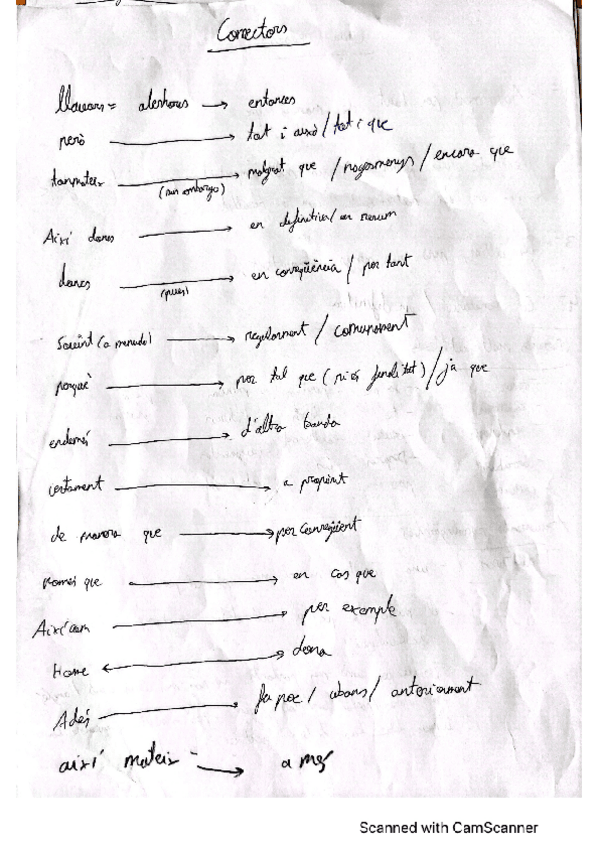 Connectors
llavors = aleshores → entonces
però → tot i això / tot i que
tanmateix → malgrat que / nogesmenys / encara que
(sin embargo)
Així doncs → en definitiva / en resum
doncs → en conseqüència / por tant
(pues)
Sovint (a menudo) → regularment / comunament
perquè → per tal que (si és finalitat) / ja que
endemés → d'altra banda
certament → a propòsit
de manera que → per consegüent
només que → en cas que
Així com → per exemple
Home ↔ dona
Adés → fa poc / abans / anteriorment
així mateix → a més
Scanned with CamScanner